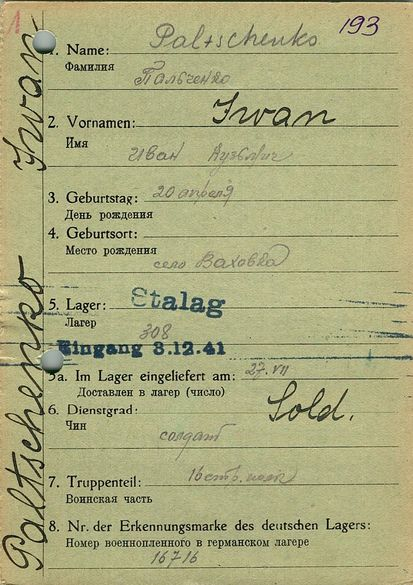 1
193
Paltschenko Iwan
1. Name: Paltschenko
Фамилия Пальченко
2. Vornamen: Iwan
Имя Иван Кузьмич
3. Geburtstag: 20 апреля
День рождения
4. Geburtsort:
Место рождения
село Ваховка
5. Lager: Stalag
Лагер 308
Eingang 3.12.41
5a. Im Lager eingeliefert am: 27.VII
Доставлен в лагер (число)
6. Dienstgrad: Sold.
Чин
солдат
7. Truppenteil: 16 стр. полк
Воинская часть
8. Nr. der Erkennungsmarke des deutschen Lagers:
Номер военнопленного в германском лагере
16716